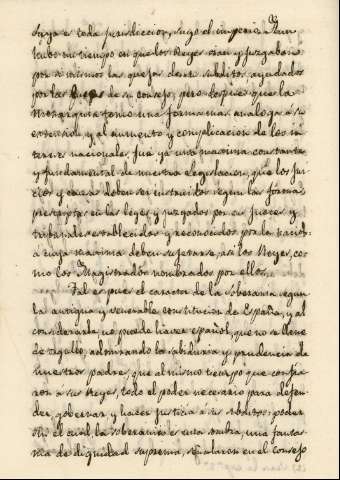 suya es toda jurisdiccion, suyo el imperio. Aun
hubo un tiempo en que los Reyes oian y juzgaban
por si mismos las quejas de sus subditos, ayudados
por los de su consejo; pero despues que la
Monarquia tomó una forma mas analoga á su
estension, y al aumento y complicacion de los in-
tereses nacionales, fué ya una maxima constante
y fundamental de nuestra legislacion, que los jui-
cios y causas deben ser instruidos segun las formas
prescriptas en las leyes y juzgados por sus jueces y
tribunales establecidos y reconocidos por la nacion:
á cuya maxima deben sujetarse, asi los Reyes, co-
mo los Magistrados nombrados por ellos.
Tal es pues el caracter de la soberania segun
la antigua y venerable constitucion de España, y al
considerarla no puede haver español, que no se llene
de orgullo, admirando la sabiduria y prudencia de
nuestros padres, que al mismo tiempo que confia-
ron á sus Reyes, todo el poder necesario para defen-
der, gobernar y hacer justicia á sus subditos: poder
sin el cual la soberania es una sombra, una fantas-
ma de dignidad suprema, señalaron en el consejo